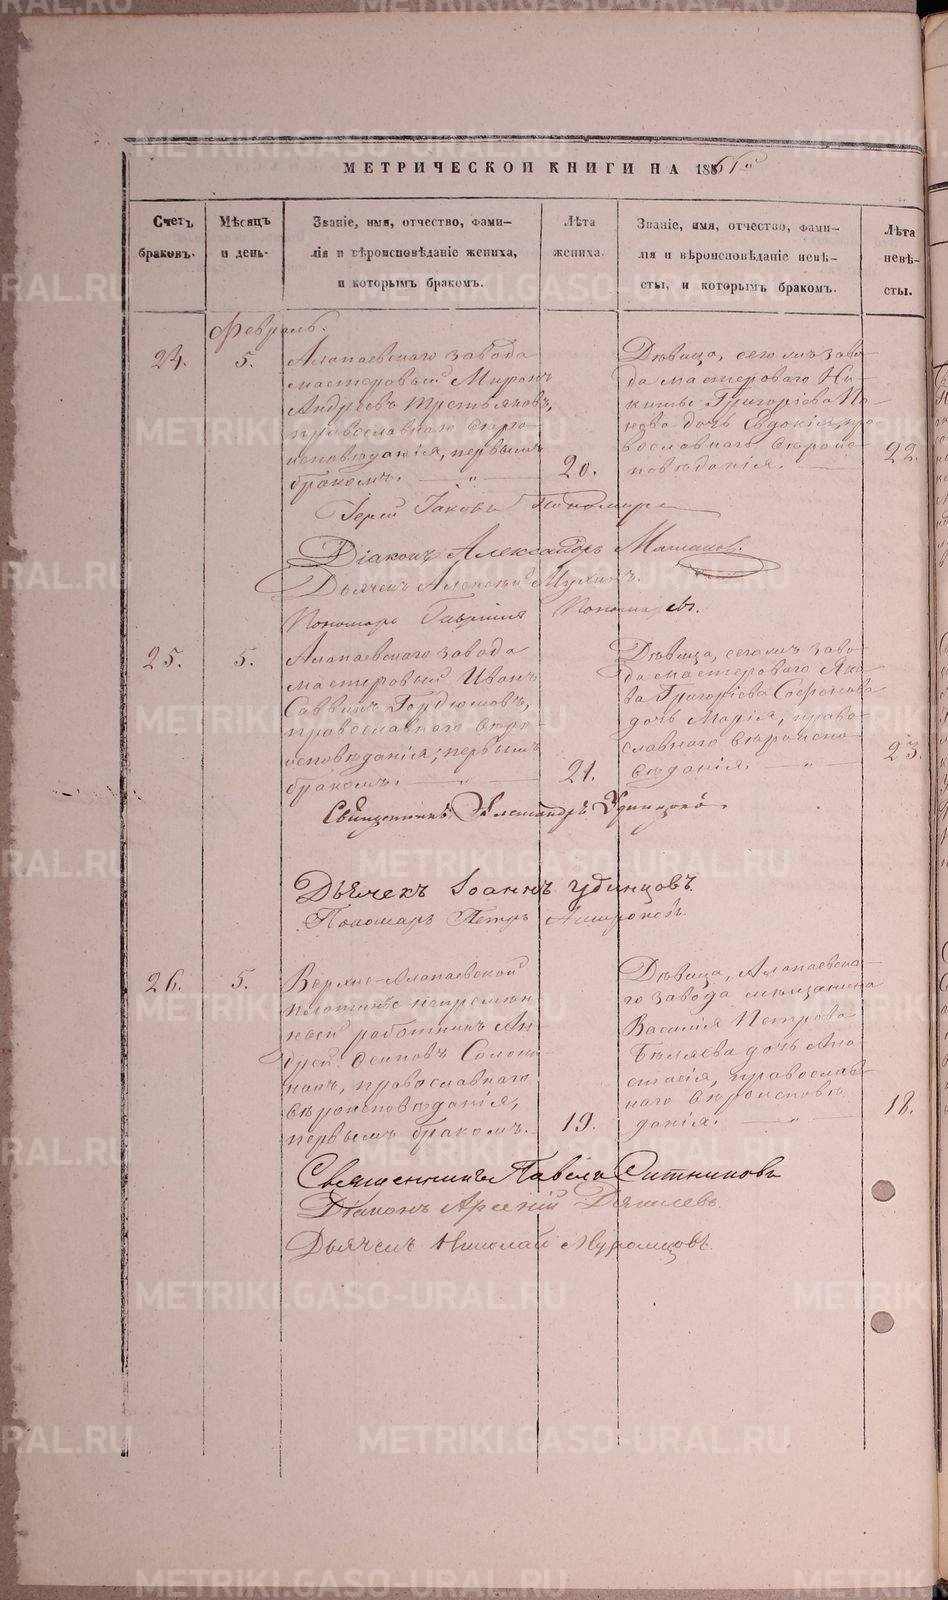 МЕТРИЧЕСКОЙ КНИГИ НА 1861й
Счетъ браковъ.
Мѣсяцъ и день.
Званіе, имя, отчество, фами-
лія и вѣроисповѣданіе жениха,
и которымъ бракомъ.
Лѣта жениха.
Званіе, имя, отчество, фами-
лія и вѣроисповѣданіе невѣ-
сты, и которымъ бракомъ.
Лѣта невѣ-
сты.
Февраль.
24.
5.
Алапаевскаго завода
мастеровый Миронъ
Андреевъ Третьяковъ,
православнаго вѣро-
исповѣданія, первымъ
бракомъ.
20.
Дѣвица, сегомъ заво-
да мастероваго Ни-
киты Григоріева По-
дочь Евдокія, пра-
вославнаго вѣроис-
повѣданія.
22.
Іерей Іаковъ Пономаревъ
Діаконъ Александръ
Дьячекъ Алексѣй Мухинъ.
Пономарь Гавріилъ Пономаревъ.
25.
5.
Алапаевскаго завода
мастеровый Иванъ
Саввинъ Гордюшовъ,
православнаго вѣро-
исповѣданія, первымъ
бракомъ.
21.
Дѣвица, сегомъ заво-
да мастероваго Яко-
ва Григоріева Софонова
дочь Марія, право-
славнаго вѣроиспо-
вѣданія.
23.
Священникъ Александръ Удинцовъ.
Дьячекъ Іоаннъ Удинцовъ.
Пономарь Петръ
26.
5.
Верхне-Алапаевской
непремѣн-
ный работникъ Ан-
дрей Осиповъ Соломи-
нанъ, православнаго
вѣроисповѣданія,
первымъ бракомъ.
19.
Дѣвица, Алапаевска-
го завода мѣщанина
Василія Петрова
Бѣляева дочь Ана-
стасія, православ-
наго вѣроисповѣ-
данія.
18.
Священникъ Павелъ Ситниковъ
Діаконъ Арсеній Дягилевъ.
Дьячекъ Николай Муромцовъ.
METRIKI.GASO-URAL.RU